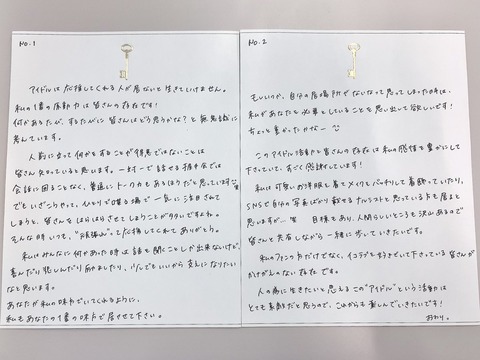 No.1
アイドルは応援してくれる人が居ないと生きていけません。
私の1番の原動力は皆さんの存在です!
何かあるたび、するたびに皆さんはどう思うかな?と無意識に
考えています。
人前に立って何かをすることが得意ではないことは
皆さん知っていると思います。一対一で話せる握手会では
会話に困ることなく、普通にトーク力もあるほうだと思っています
でもいざこざやって、1人とりで喋る場で一気に注目されて
しまうと、皆さんをはらはらさせてしまうことが多いですよね。
そんな時いつも、"頑張れ"って応援してくれてありがとう。
私はみんなに何かあった時は話を聞くことしか出来ないけど、
喜んだり悲しんだり励ましたり、少しでもいいから支えになりたい
なと思います。
あなたが私の味方でいてくれるように、
私もあなたの1番の味方で居させて下さい。
No.2
もしいつか、自分の居場所がないなって思ってしまった時は、
私があなたを必要としていることを思い出して欲しいです!
ちょっと重かったかなー
このアイドル活動と皆さんの存在は私の感情を豊かにして
下さっていて、すごく感謝しています!
私は可愛いお洋服を着てメイクもバッチリして着飾っていたり、
SNSで自分の写真ばかり載せるナルシストだと思っている方も居ると
思いますが…笑 目標とあり、人間らしいところも沢山あるので
皆さんと共有しながら一緒に歩いていきたいです。
私のファンの方だけでなく、イコラブを好きでいて下さっている皆さんが
かけがえのない存在です。
人の為に生きたいと思えるこの"アイドル"という活動は
とても素敵だと思うので、これからも楽しんでいきたいです!
おわり。